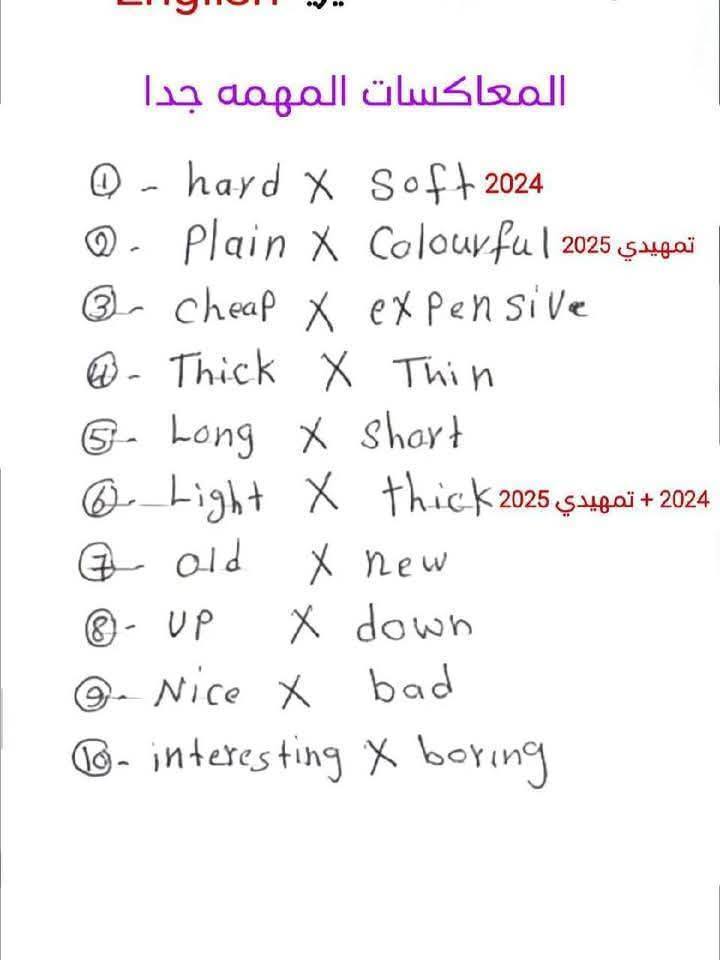 المعاكسات المهمه جدا
① - hard X Soft 2024
② - Plain X Colourful تمهيدي 2025
③ - cheap X expensive
④ - Thick X Thin
⑤ - Long X short
⑥ - Light X thick 2024 + تمهيدي 2025
⑦ - old X new
⑧ - UP X down
⑨ - Nice X bad
⑩ - interesting X boring